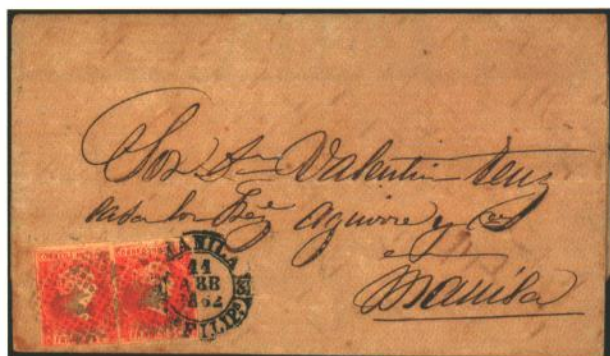 Sor Dn Valentin Teuz
casa los Sres Aguirre y Ca
Manila
MANILA
11
ABR
1862
FILIPs